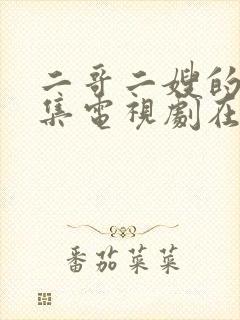 二哥二嫂的
集電視劇在
番茄菜菜